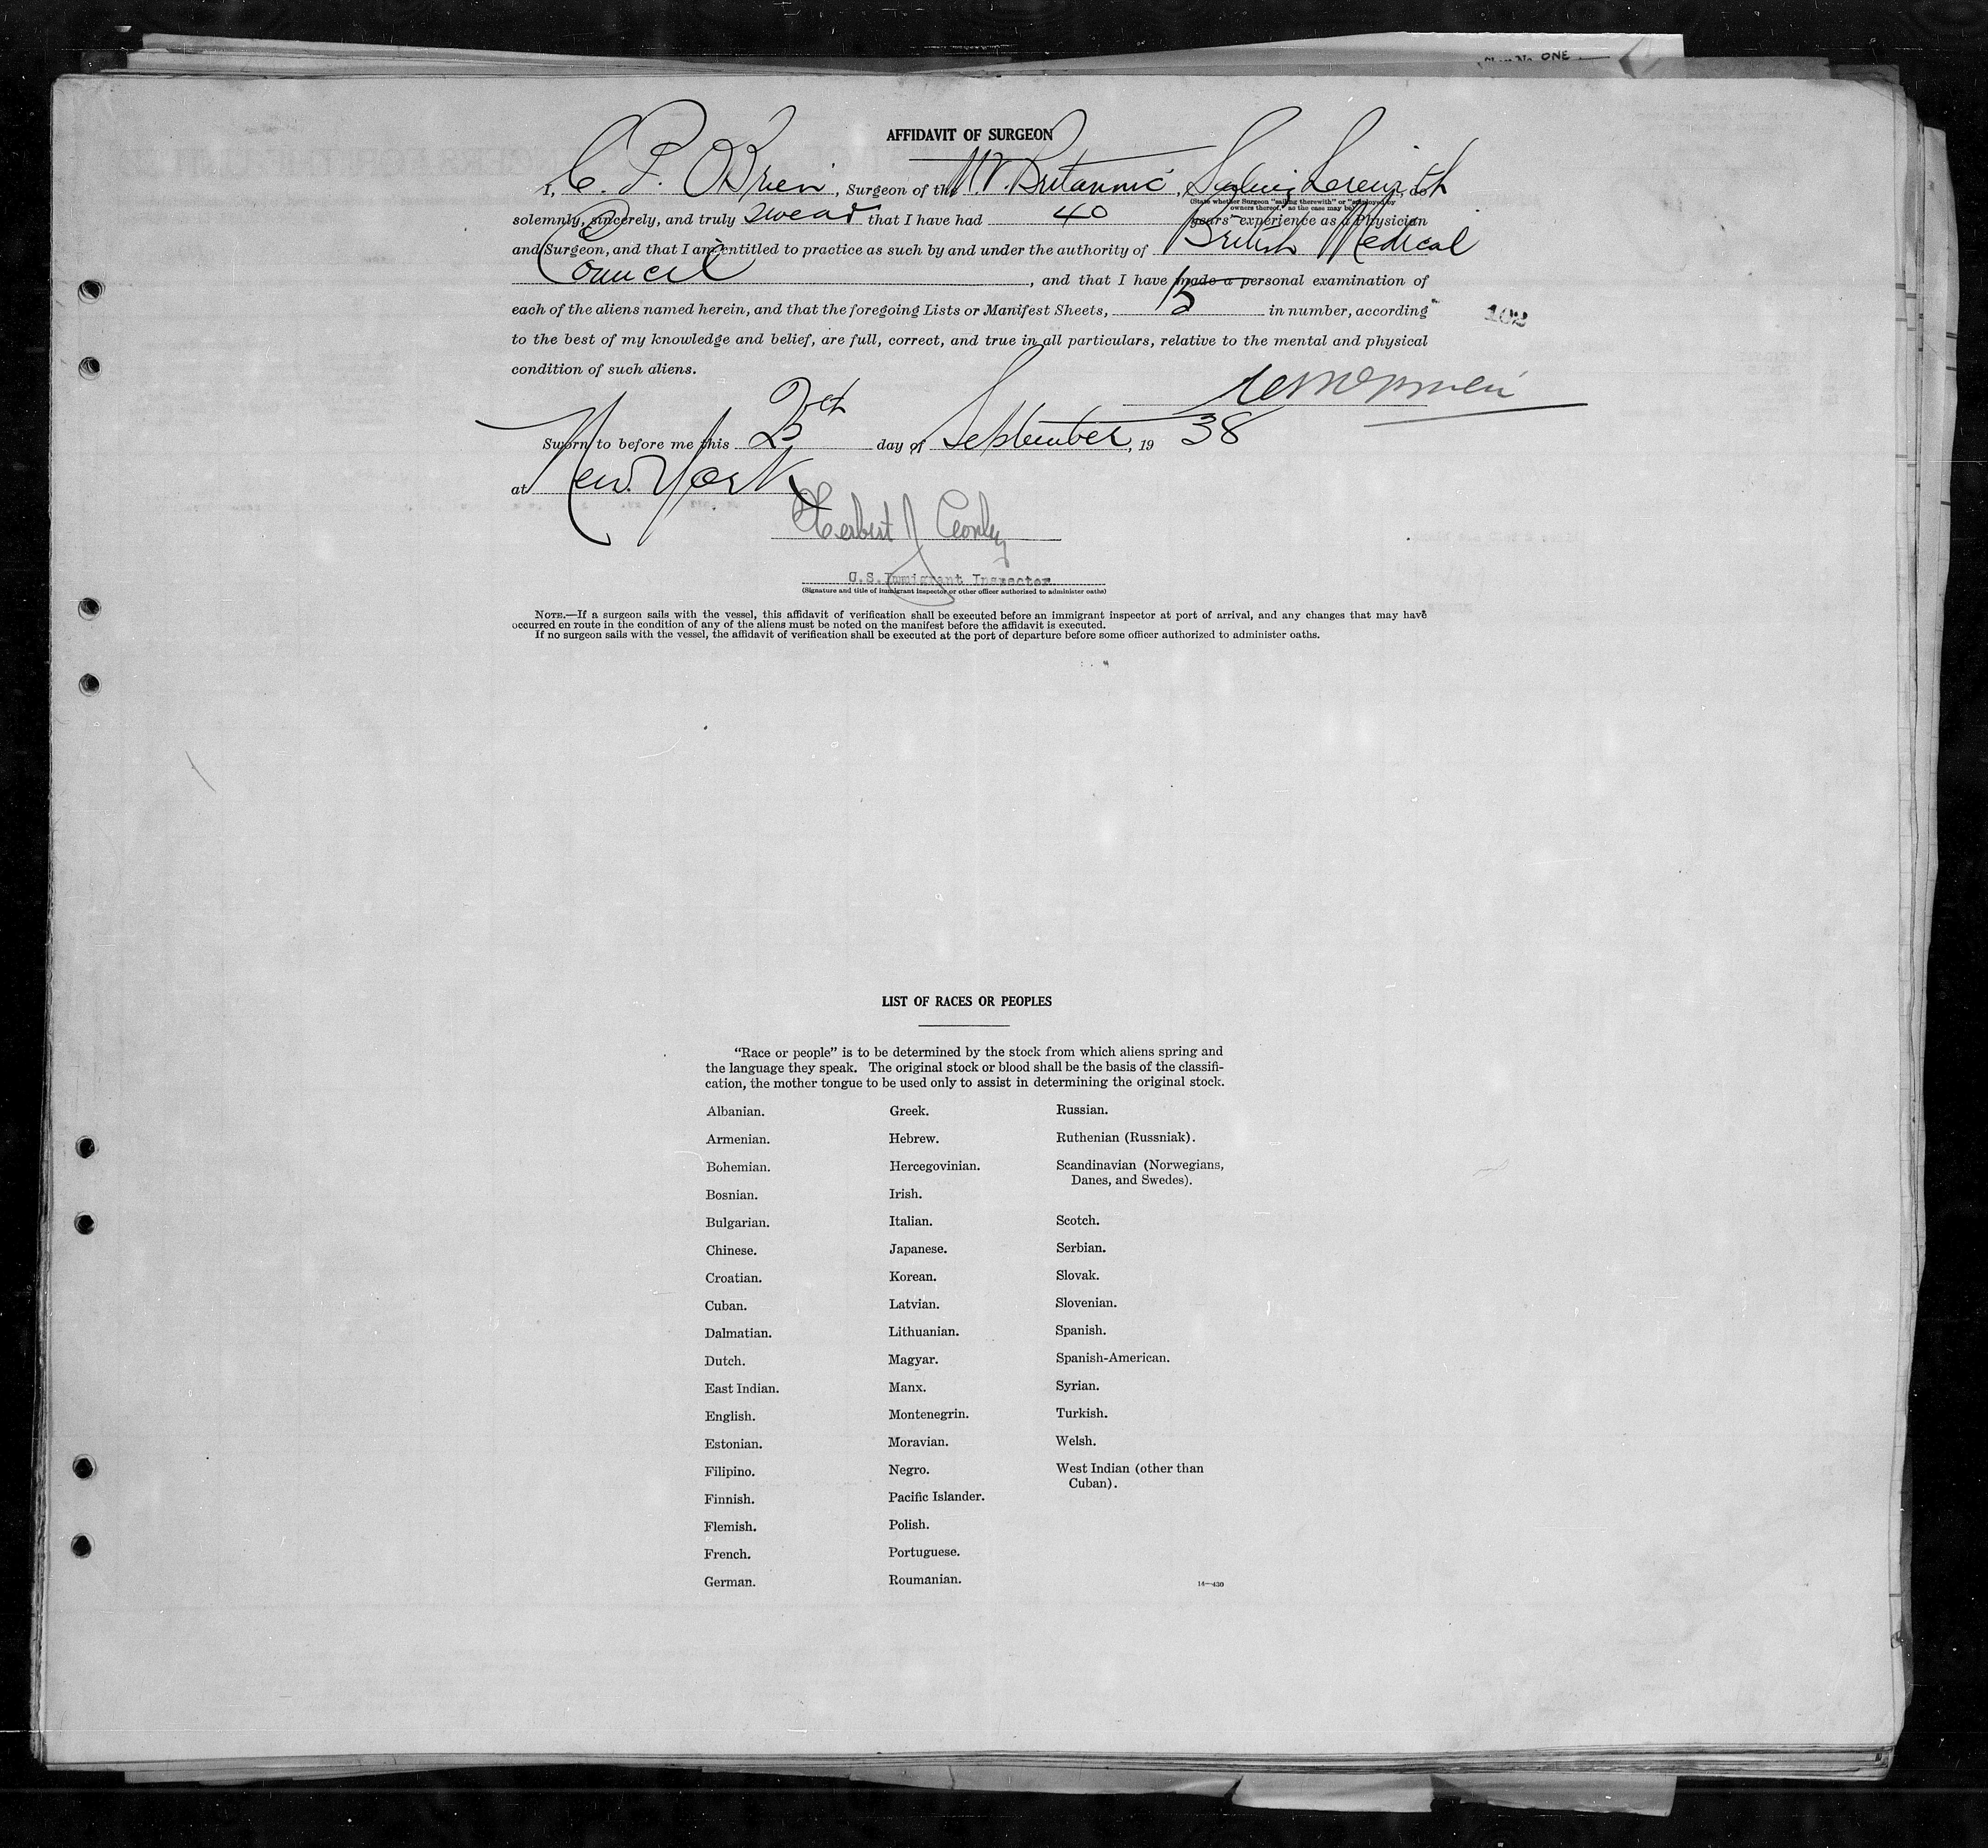 ONE
AFFIDAVIT OF SURGEON
I, C. P. O'Brien, Surgeon of the M.V. Britannic, Sailing Therewith, do
(State whether Surgeon "sailing therewith" or "employed by
owners thereof," as the case may be)
solemnly, sincerely, and truly swear that I have had 40 years' experience as a Physician
and Surgeon, and that I am entitled to practice as such by and under the authority of British Medical
Council, and that I have made a personal examination of
each of the aliens named herein, and that the foregoing Lists or Manifest Sheets, 15 in number, according
102
to the best of my knowledge and belief, are full, correct, and true in all particulars, relative to the mental and physical
condition of such aliens.
Sworn to before me this day of September, 19 38
at New York
Herbert J
U.S. Immigrant Inspector
(Signature and title of immigrant inspector or other officer authorized to administer oaths)
NOTE.—If a surgeon sails with the vessel, this affidavit of verification shall be executed before an immigrant inspector at port of arrival, and any changes that may have
occurred en route in the condition of any of the aliens must be noted on the manifest before the affidavit is executed.
If no surgeon sails with the vessel, the affidavit of verification shall be executed at the port of departure before some officer authorized to administer oaths.
LIST OF RACES OR PEOPLES
"Race or people" is to be determined by the stock from which aliens spring and
the language they speak. The original stock or blood shall be the basis of the classifi-
cation, the mother tongue to be used only to assist in determining the original stock.
Albanian.
Armenian.
Bohemian.
Bosnian.
Bulgarian.
Chinese.
Croatian.
Cuban.
Dalmatian.
Dutch.
East Indian.
English.
Estonian.
Filipino.
Finnish.
Flemish.
French.
German.
Greek.
Hebrew.
Hercegovinian.
Irish.
Italian.
Japanese.
Korean.
Latvian.
Lithuanian.
Magyar.
Manx.
Montenegrin.
Moravian.
Negro.
Pacific Islander.
Polish.
Portuguese.
Roumanian.
Russian.
Ruthenian (Russniak).
Scandinavian (Norwegians,
Danes, and Swedes).
Scotch.
Serbian.
Slovak.
Slovenian.
Spanish.
Spanish-American.
Syrian.
Turkish.
Welsh.
West Indian (other than
Cuban).
14—430